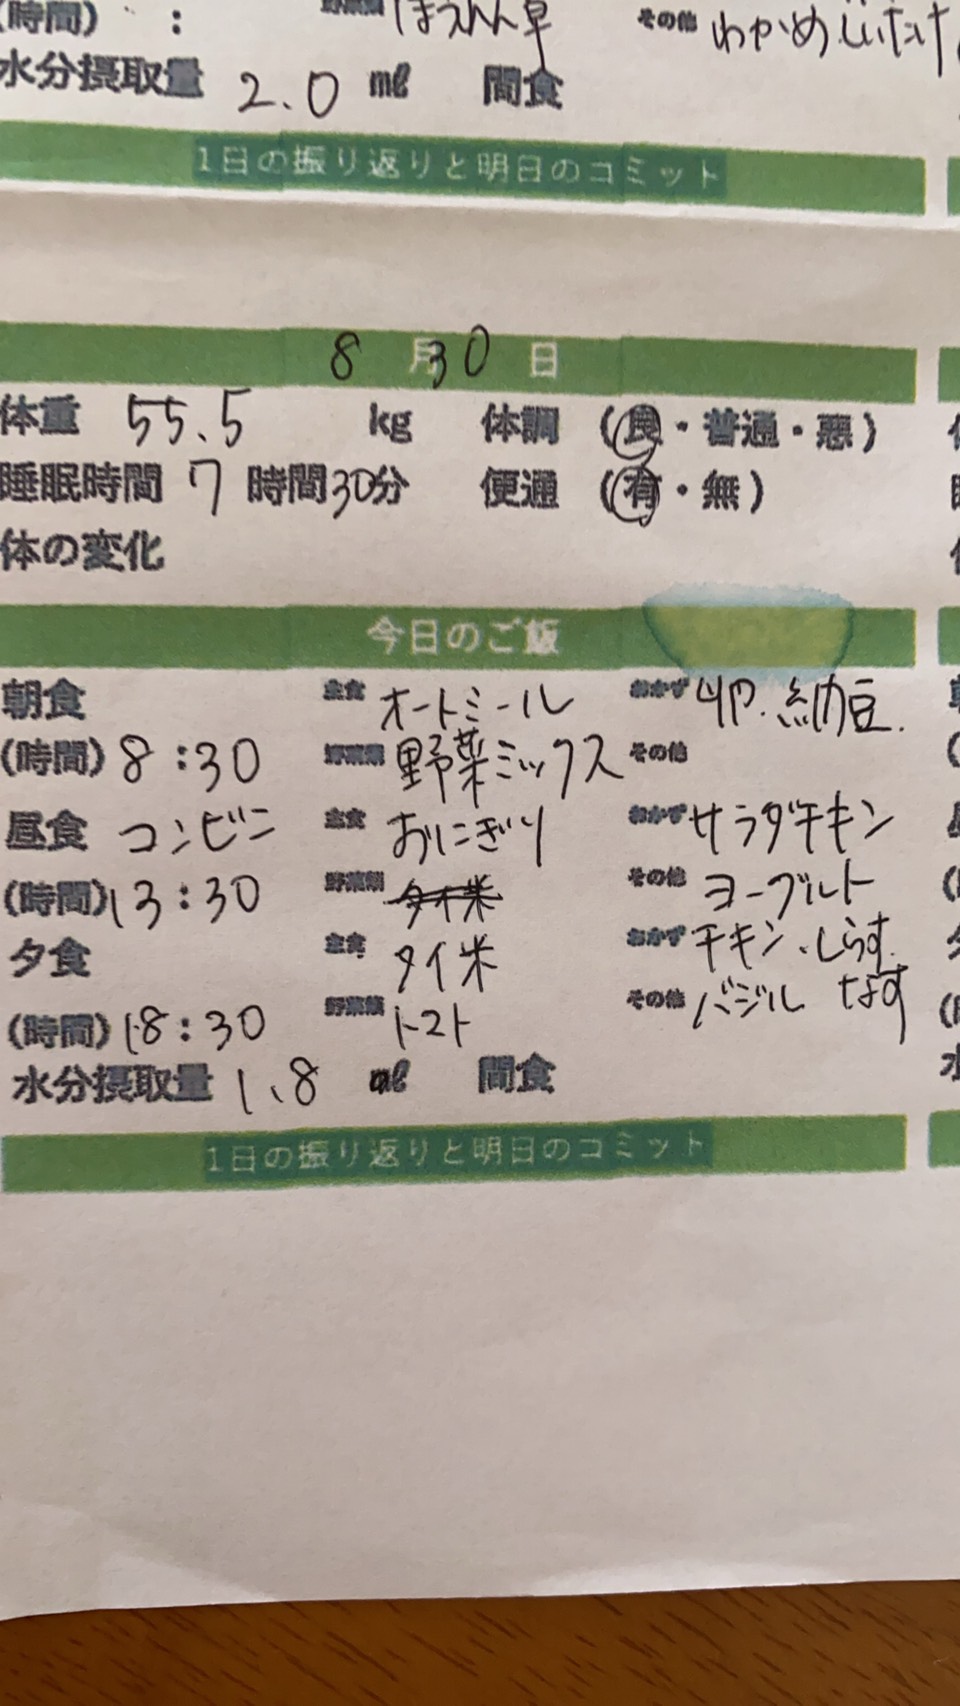 (時間) : 野菜類 ほうれん草 その他 わかめ しいたけ
水分摂取量 2.0 ㎖ 間食
1日の振り返りと明日のコミット
8月30日
体重 55.5 kg 体調 (良・普通・悪)
睡眠時間 7 時間30分 便通 (有・無)
体の変化
今日のご飯
朝食 主食 オートミール おかず 卵.納豆.
(時間) 8:30 野菜類 野菜ミックス その他
昼食 コンビニ 主食 おにぎり おかず サラダチキン
(時間) 13:30 野菜類 タイ米 その他 ヨーグルト
夕食 主食 タイ米 おかず チキン.しらす.
(時間) 18:30 野菜類 トマト その他 バジル なす
水分摂取量 1.8 ㎖ 間食
1日の振り返りと明日のコミット